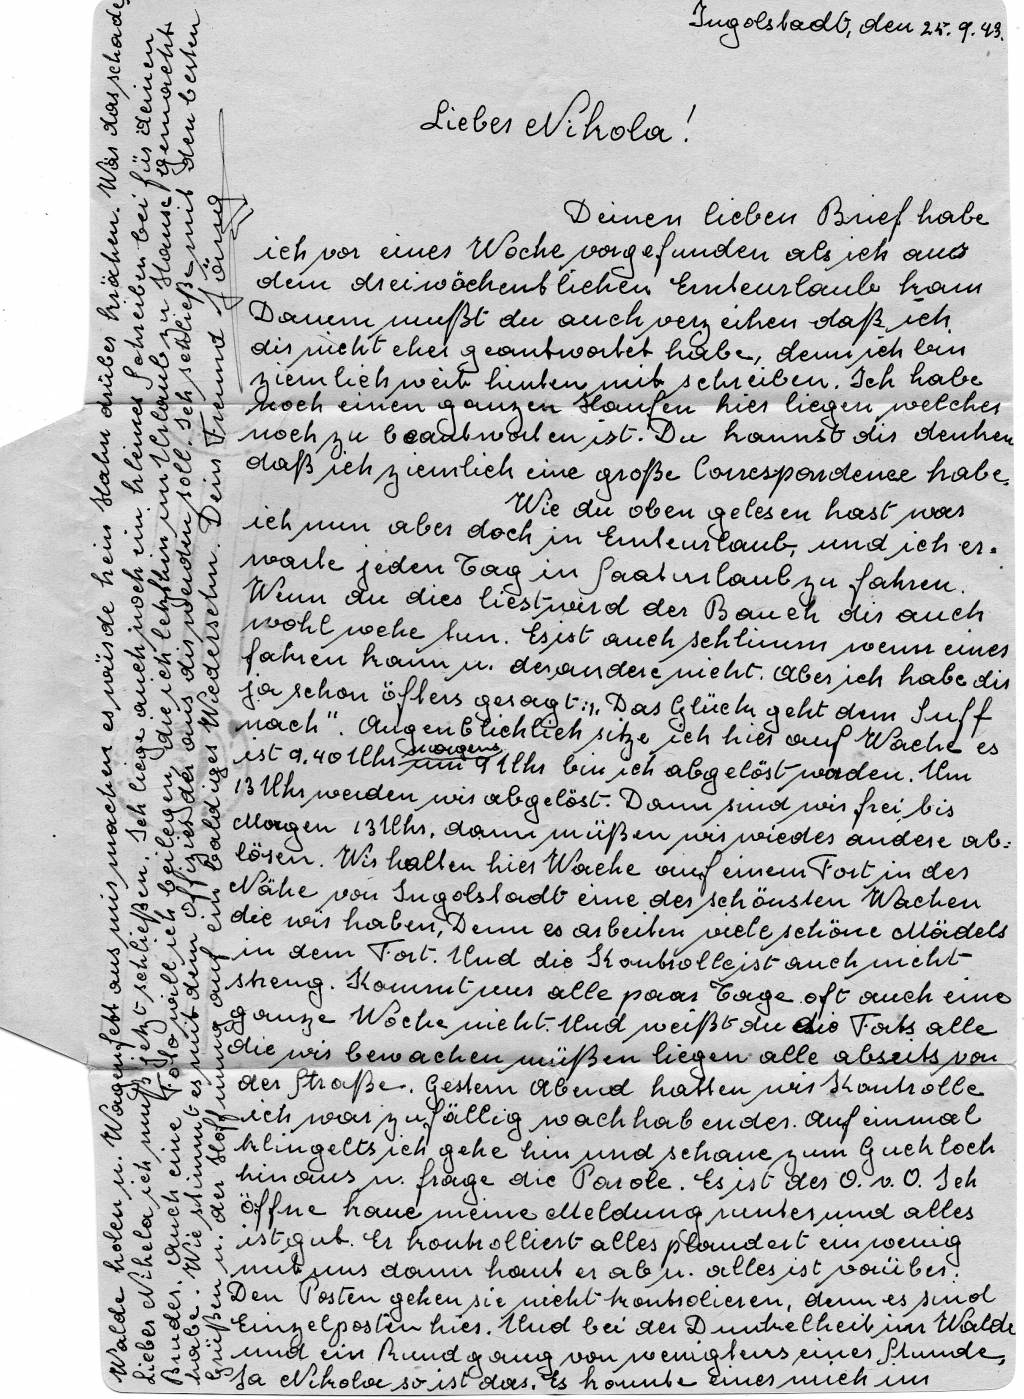 Ingolstadt, den 25.9.43.
Lieber Nikola!
Deinen lieben Brief habe
ich vor einer Woche vorgefunden als ich aus
dem dreiwöchentlichen Ernteurlaub kam
Darum mußt du auch verzeihen daß ich
dir nicht eher geantwortet habe, denn ich bin
ziemlich weit hinten mit schreiben. Ich habe
noch einen ganzen Haufen hier liegen welcher
noch zu beantworten ist. Du kannst dir denken
daß ich ziemlich eine große Correspondence habe.
Wie du oben gelesen hast war
ich nun aber doch in Ernteurlaub, und ich er-
warte jeden Tag in Saaturlaub zu fahren.
Wenn du dies liest wird der Bauch dir auch
wohl wehe tun. Es ist auch schlimm wenn einer
fahren kann u. der andere nicht. Aber ich habe dir
ja schon öfters gesagt: „Das Glück geht dem Suff
nach". Augenblicklich sitze ich hier auf Wache es
ist 9.40 Uhr morgens um 9 Uhr bin ich abgelöst worden. Um
13 Uhr werden wir abgelöst. Dann sind wir frei bis
Morgen 13 Uhr, dann müßen wir wieder andere ab-
lösen. Wir halten hier Wache auf einem Fort in der
Nähe von Ingolstadt eine der schönsten Wachen
die wir haben, Denn es arbeiten viele schöne Mädels
in dem Fort. Und die Kontrolle ist auch nicht
streng. Kommt nur alle paar Tage oft auch eine
ganze Woche nicht. Und weißt du die Forts alle
die wir bewachen müßen liegen alle abseits von
der Straße. Gestern Abend hatten wir Kontrolle
ich war zufällig wachhabender. Auf einmal
klingelts ich gehe hin und schaue zum Guckloch
hinaus u. frage die Parole. Es ist der O. v. O. Ich
öffne haue meine Meldung runter und alles
ist gut. Er kontrolliert alles plaudert ein wenig
mit uns dann haut er ab u. alles ist vorüber.
Den Posten gehen sie nicht kontrolieren, denn es sind
Einzelposten hier. Und bei der Dunkelheit im Walde
und ein Rundgang von wenigstens einer Stunde,
Ja Nikola so ist das. Es könnte einer mich im
Walde holen u. Wagenfett aus mir machen es würde kein Hahn drüber krähen. Wär das schade.
Lieber Nikola ich muß jetzt schließen. Ich liege auch noch ein kleines Schreiben bei für deinen
Bruder. Auch eine Foto will ich beilegen, die ich letzthin im Urlaub zu Hause gemacht
habe. Wie stimmt es mit dem Offizier der aus dir werden soll. Ich schließe mit den besten
Grüßen u. der Hoffnung auf ein baldiges Wiedersehn. Dein Freund